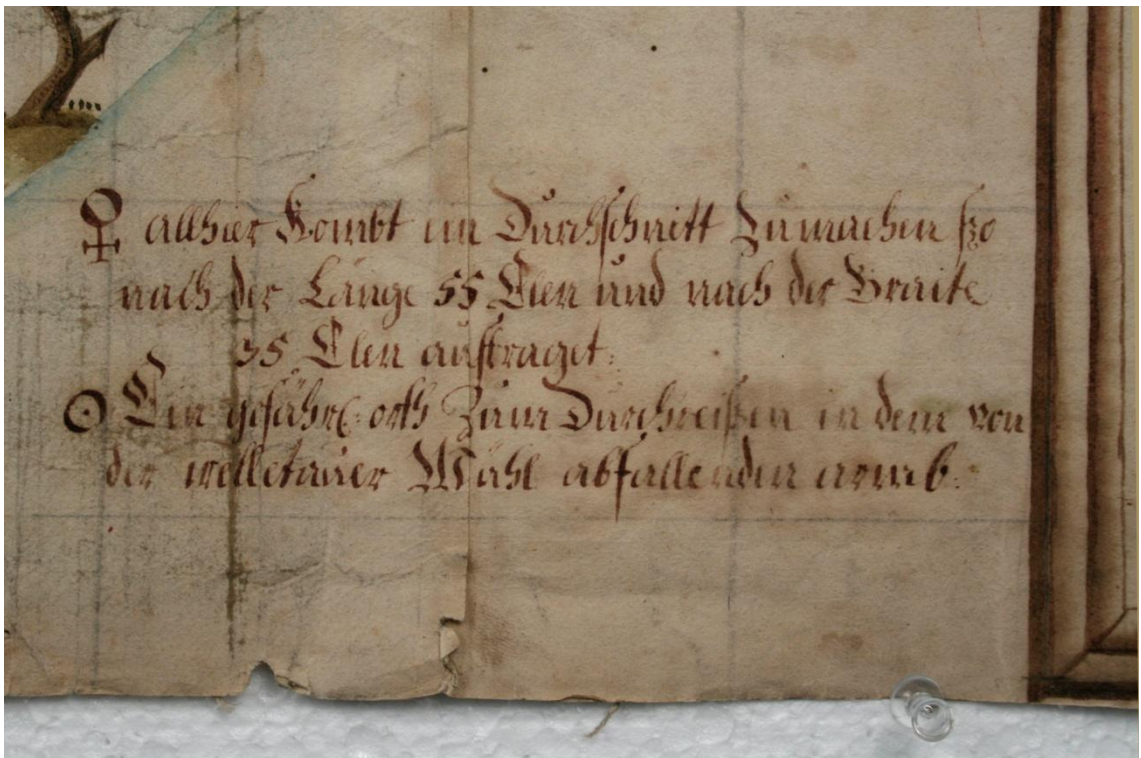 ♀ allhier Kombt ein Durchschnitt Zumachen so
nach der Länge 55 Elen und nach der Braite
35 Elen außtraget:
⊙ Ein gefährl: orth Zum Durchreißen in dem von
der welletauer Mühl abfallenden armb: